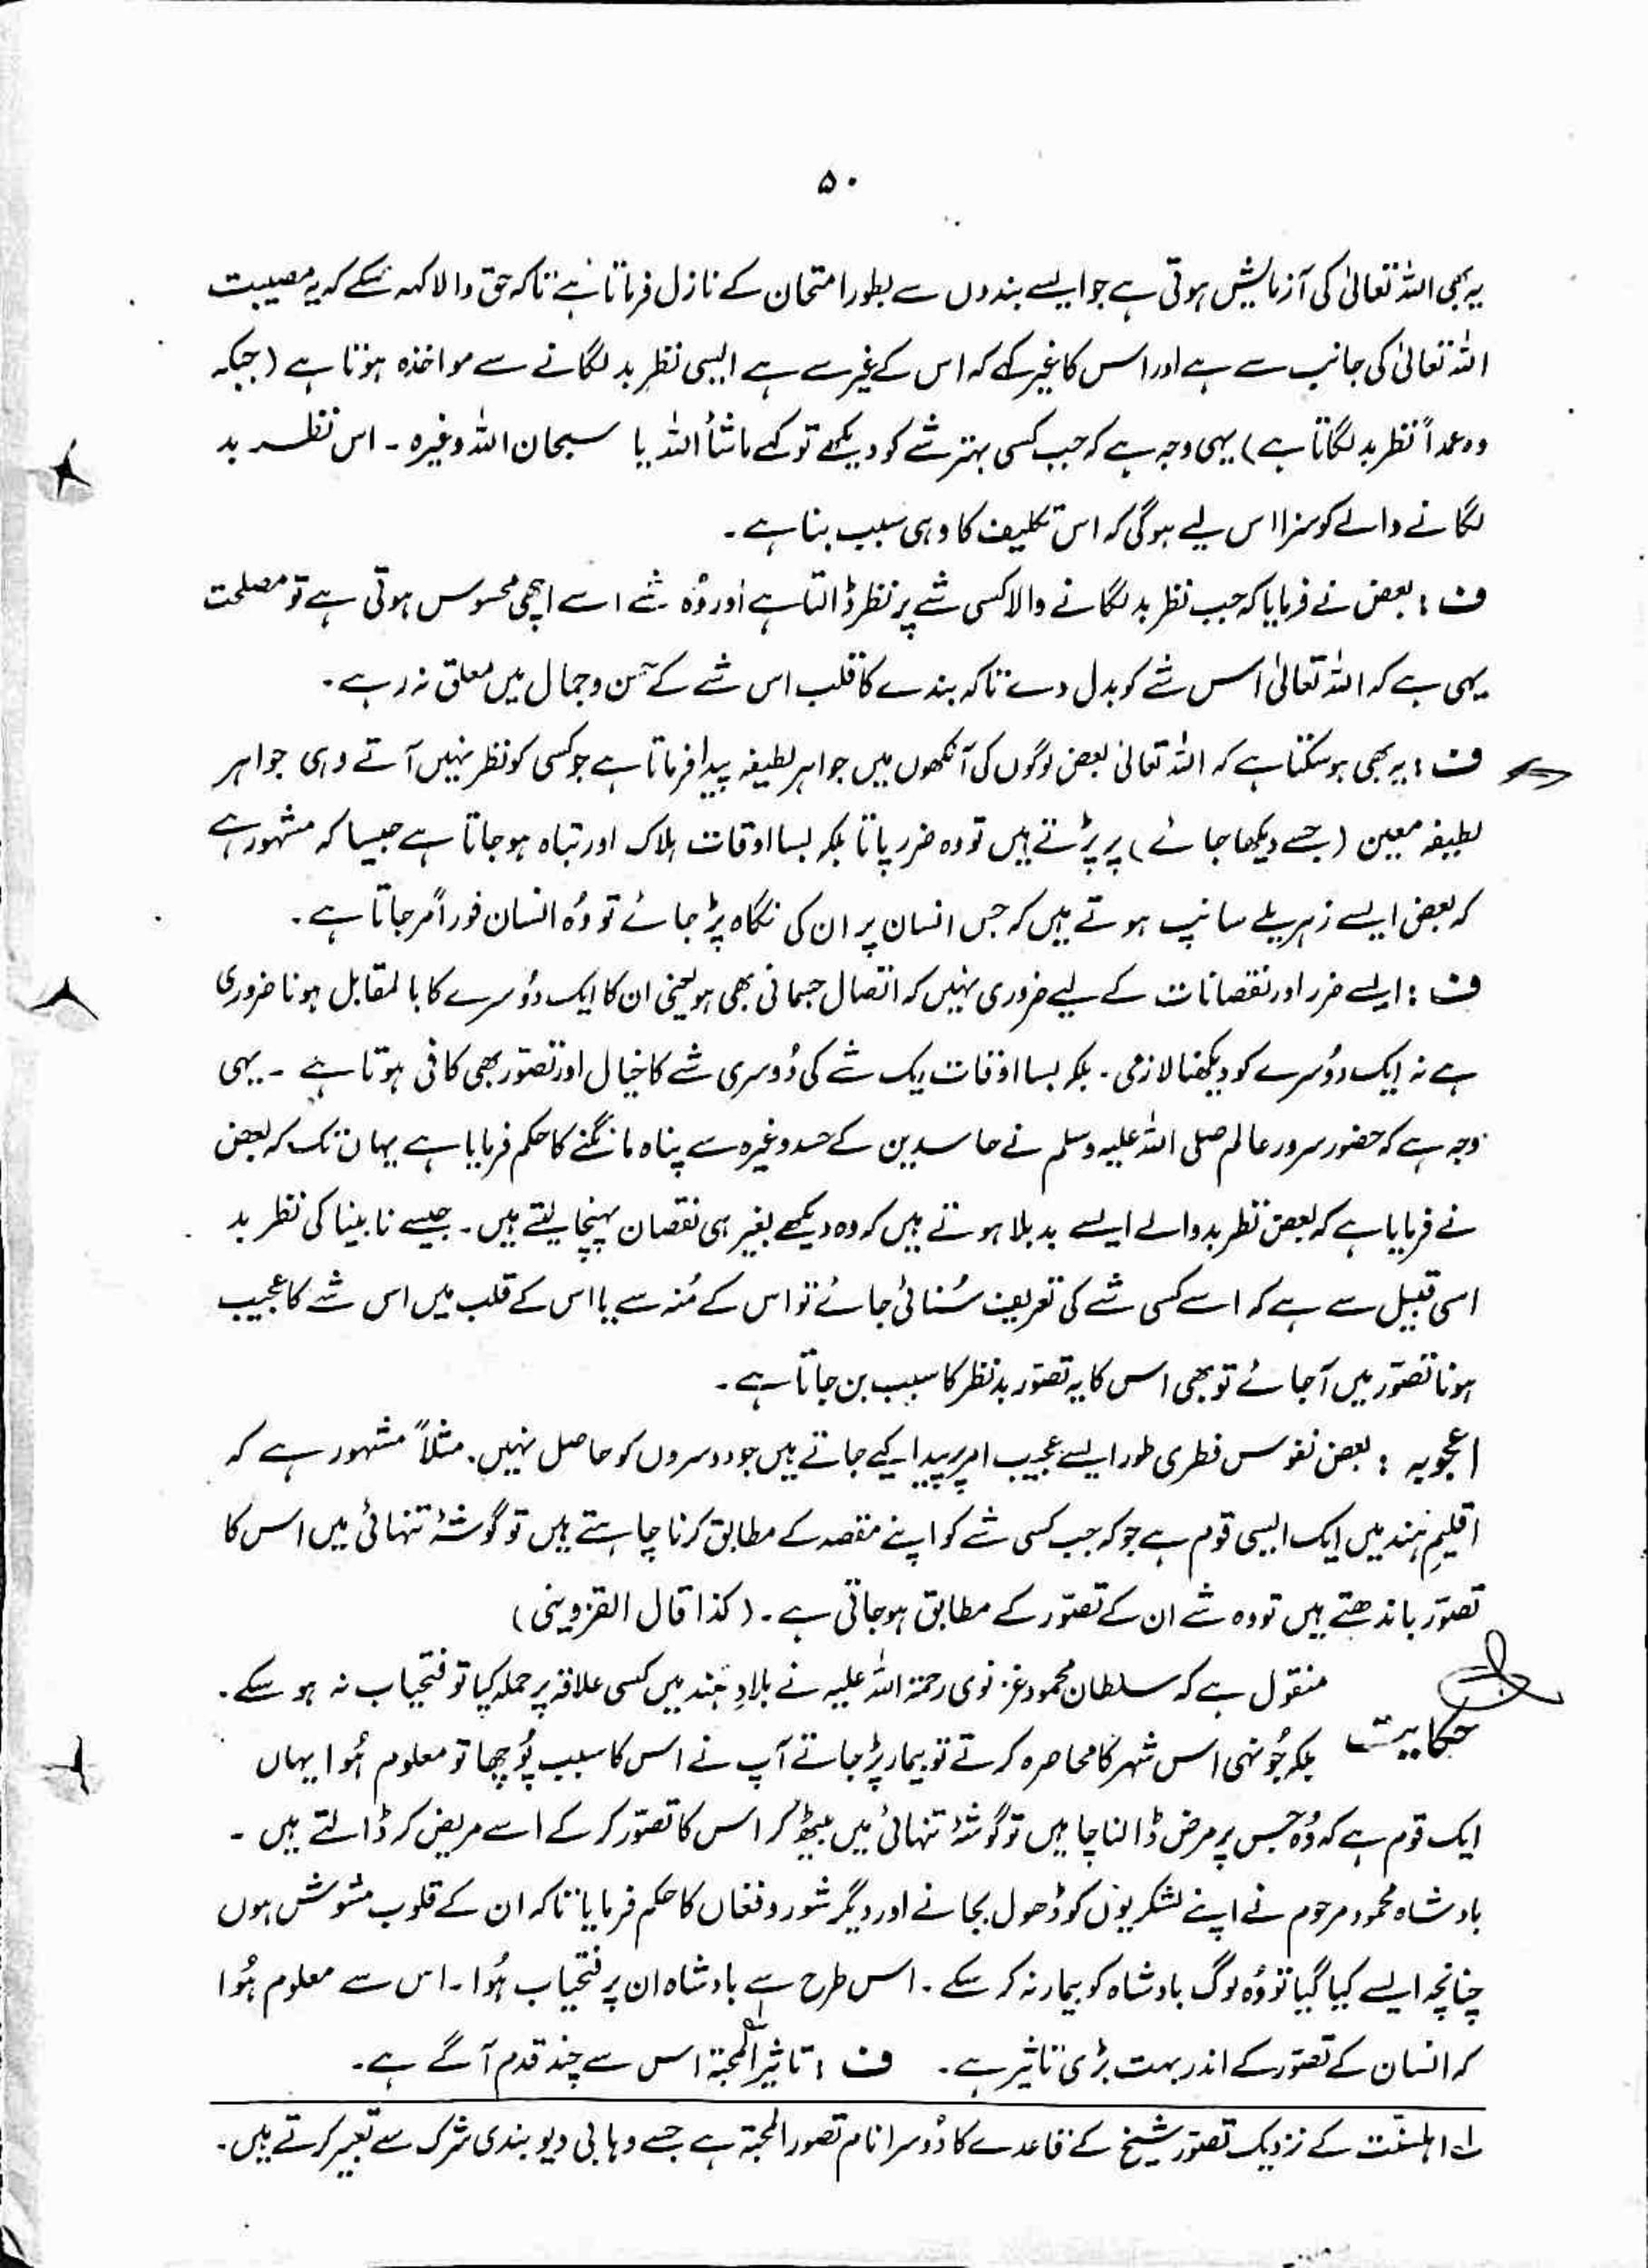 ۵۰
یہ بھی اللہ تعالیٰ کی آزمایش ہوتی ہے جو ایسے بندوں سے بطور امتحان کے نازل فرماتا ہے تاکہ حق والا کہہ سکے کہ یہ مصیبت
اللہ تعالیٰ کی جانب سے ہے اور اس کا غیر کہے کہ اس کے غیر سے ہے ایسی نظرِ بد لگانے سے مواخذہ ہوتا ہے (جبکہ
وہ عمداً نظر بد لگاتا ہے) یہی وجہ ہے کہ جب کسی بہتر شے کو دیکھے تو کہے ماشأ اللہ یا سبحان اللہ وغیرہ ۔ اس نظر بد
لگانے والے کو سزا اس لیے ہوگی کہ اس تکلیف کا وہی سبب بنا ہے ۔
ف : بعض نے فرمایا کہ جب نظر بد لگانے والا کسی شے پر نظر ڈالتا ہے اور وُہ شے اسے اچھی محسوس ہوتی ہے تو مصلحت
یہی ہے کہ اللہ تعالیٰ اس شے کو بدل دے تاکہ بندے کا قلب اس شے کے حسن و جمال میں معلق نہ رہے ۔
ف : یہ بھی ہوسکتا ہے کہ اللہ تعالیٰ بعض لوگوں کی آنکھوں میں جواہر لطیفہ پیدا فرماتا ہے جو کسی کو نظر نہیں آتے وہی جواہر
لطیفہ معین (جسے دیکھا جائے) پر پڑتے ہیں تو وہ ضرر پاتا بلکہ بسا اوقات ہلاک اور تباہ ہو جاتا ہے جیسا کہ مشہور ہے
کہ بعض ایسے زہریلے سانپ ہوتے ہیں کہ جس انسان پر ان کی نگاہ پڑ جائے تو وُہ انسان فوراً مر جاتا ہے ۔
ف : ایسے ضرر اور نقصانات کے لیے ضروری نہیں کہ اتصال جسمانی بھی ہو یعنی ان کا ایک دُوسرے کا بالمقابل ہونا ضروری
ہے نہ ایک دوُسرے کو دیکھنا لازمی ۔ بلکہ بسا اوقات ایک شے کی دُوسری شے کا خیال اور تصوّر بھی کافی ہوتا ہے ۔ یہی
وجہ ہے کہ حضور سرور عالم صلی اللہ علیہ وسلم نے حاسدین کے حسد وغیرہ سے پناہ مانگنے کا حکم فرمایا ہے یہاں تک کہ بعض
نے فرمایا ہے کہ بعض نظر بد والے ایسے بد بلا ہوتے ہیں کہ وہ دیکھے بغیر ہی نقصان پہنچا لیتے ہیں ۔ جیسے نابینا کی نظر بد
اسی قبیل سے ہے کہ اسے کسی شے کی تعریف سُنائی جائے تو اس کے مُنہ سے یا اس کے قلب میں اس شے کا عجیب
ہونا تصوّر میں آجائے تو بھی اس کا یہ تصوّر بد نظر کا سبب بن جاتا ہے ۔
اعجوبہ : بعض نفوس فطری طور ایسے عجیب امر پر پیدا کیے جاتے ہیں جو دوسروں کو حاصل نہیں ۔ مثلاً مشہور ہے کہ
اقلیمِ ہند میں ایک ایسی قوم ہے جو کہ جب کسی شے کو اپنے مقصد کے مطابق کرنا چاہتے ہیں تو گوشۂ تنہائی میں اس کا
تصوّر باندھتے ہیں تو وہ شے ان کے تصوّر کے مطابق ہو جاتی ہے ۔ (کذا قال القزوینی)
منقول ہے کہ سلطان محمود غزنوی رحمۃ اللہ علیہ نے بلادِ ہند میں کسی علاقہ پر حملہ کیا تو فتحیاب نہ ہو سکے ۔
حکایت بلکہ جُونہی اس شہر کا محاصرہ کرتے تو بیمار پڑ جاتے آپ نے اس کا سبب پُوچھا تو معلوم ہُوا یہاں
ایک قوم ہے کہ وُہ جس پر مرض ڈالنا چاہیں تو گوشۂ تنہائی میں بیٹھ کر اس کا تصوّر کر کے اسے مریض کر ڈالتے ہیں ۔
بادشاہ محمود مرحوم نے اپنے لشکریوں کو ڈھول بجانے اور دیگر شور و فغاں کا حکم فرمایا تاکہ ان کے قلوب مشوش ہوں
چنانچہ ایسے کیا گیا تو وُہ لوگ بادشاہ کو بیمار نہ کر سکے ۔ اس طرح سے بادشاہ ان پر فتحیاب ہُوا ۔ اس سے معلوم ہُوا
کہ انسان کے تصوّر کے اندر بہت بڑی تاثیر ہے ۔ ف : تاثیر المحبۃ اس سے چند قدم آگے ہے ۔
لہ اہلسنّت کے نزدیک تصوّر شیخ کے قاعدے کا دُوسرا نام تصور المحبۃ ہے جسے وہابی دیوبندی شرک سے تعبیر کرتے ہیں ۔